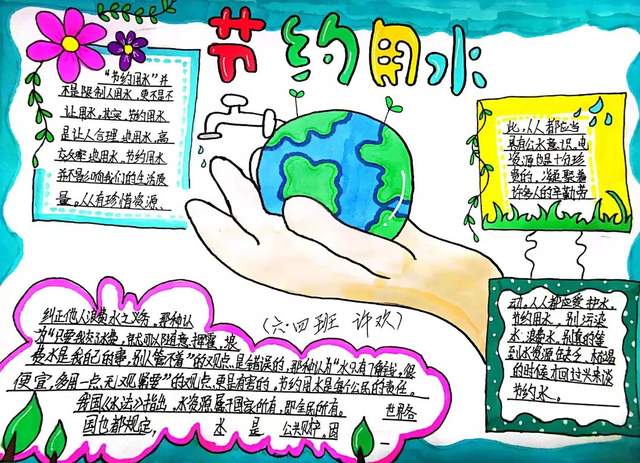 节约用水
“节约用水”并
不是限制人用水，更不是不
让用水，其实，节约用水
是让人合理地用水，高
效率地用水，节约用水
并不是影响我们的生活质
量。人人有珍惜资源、
纠正他人浪费水之义务，那种认
为“只要我交水费，就可以随意挥霍，
浪水是我自己的事，别人管不着”的观点是错误的，那种认为“水只有几角钱，很
便宜，多用一点，无人观需要”的观点更是有害的，节约用水是每个公民的责任。
我国《水法》指出，水资源属于国家所有，即全民所有。世界各
国也都规定，水是公共财产，因
此，人人都应当
具有公水意识，
资源也是十分珍
贵的，凝聚着
许多人的辛勤劳
动，人人都应爱护水，
节约用水，别污染
水 浪费水，别真的等
到水资源缺乏，枯竭
的时候才回过头来谈
节约水。
（六·四班 许欢）